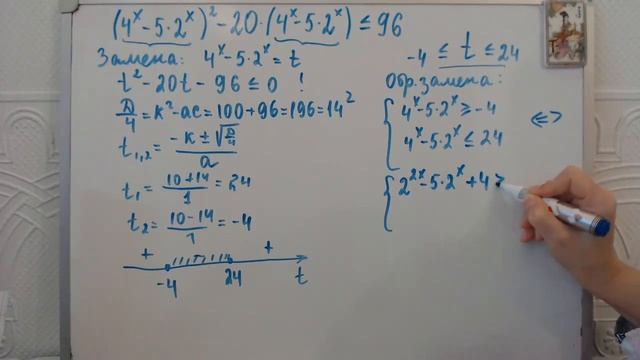 (4ˣ-5·2ˣ)²-20·(4ˣ-5·2ˣ) ≤ 96
Замена: 4ˣ-5·2ˣ = t
t²-20t-96 ≤ 0 !
D/4 = k²-ac = 100+96 = 196 = 14²
t₁,₂ = (-k ± √(D/4))/a
t₁ = (10+14)/1 = 24
t₂ = (10-14)/1 = -4
+ +
-4 24 t
-4 ≤ t ≤ 24
Обр. замена:
{ 4ˣ-5·2ˣ ≥ -4
4ˣ-5·2ˣ ≤ 24 <=>
{ 2²ˣ-5·2ˣ+4 ≥